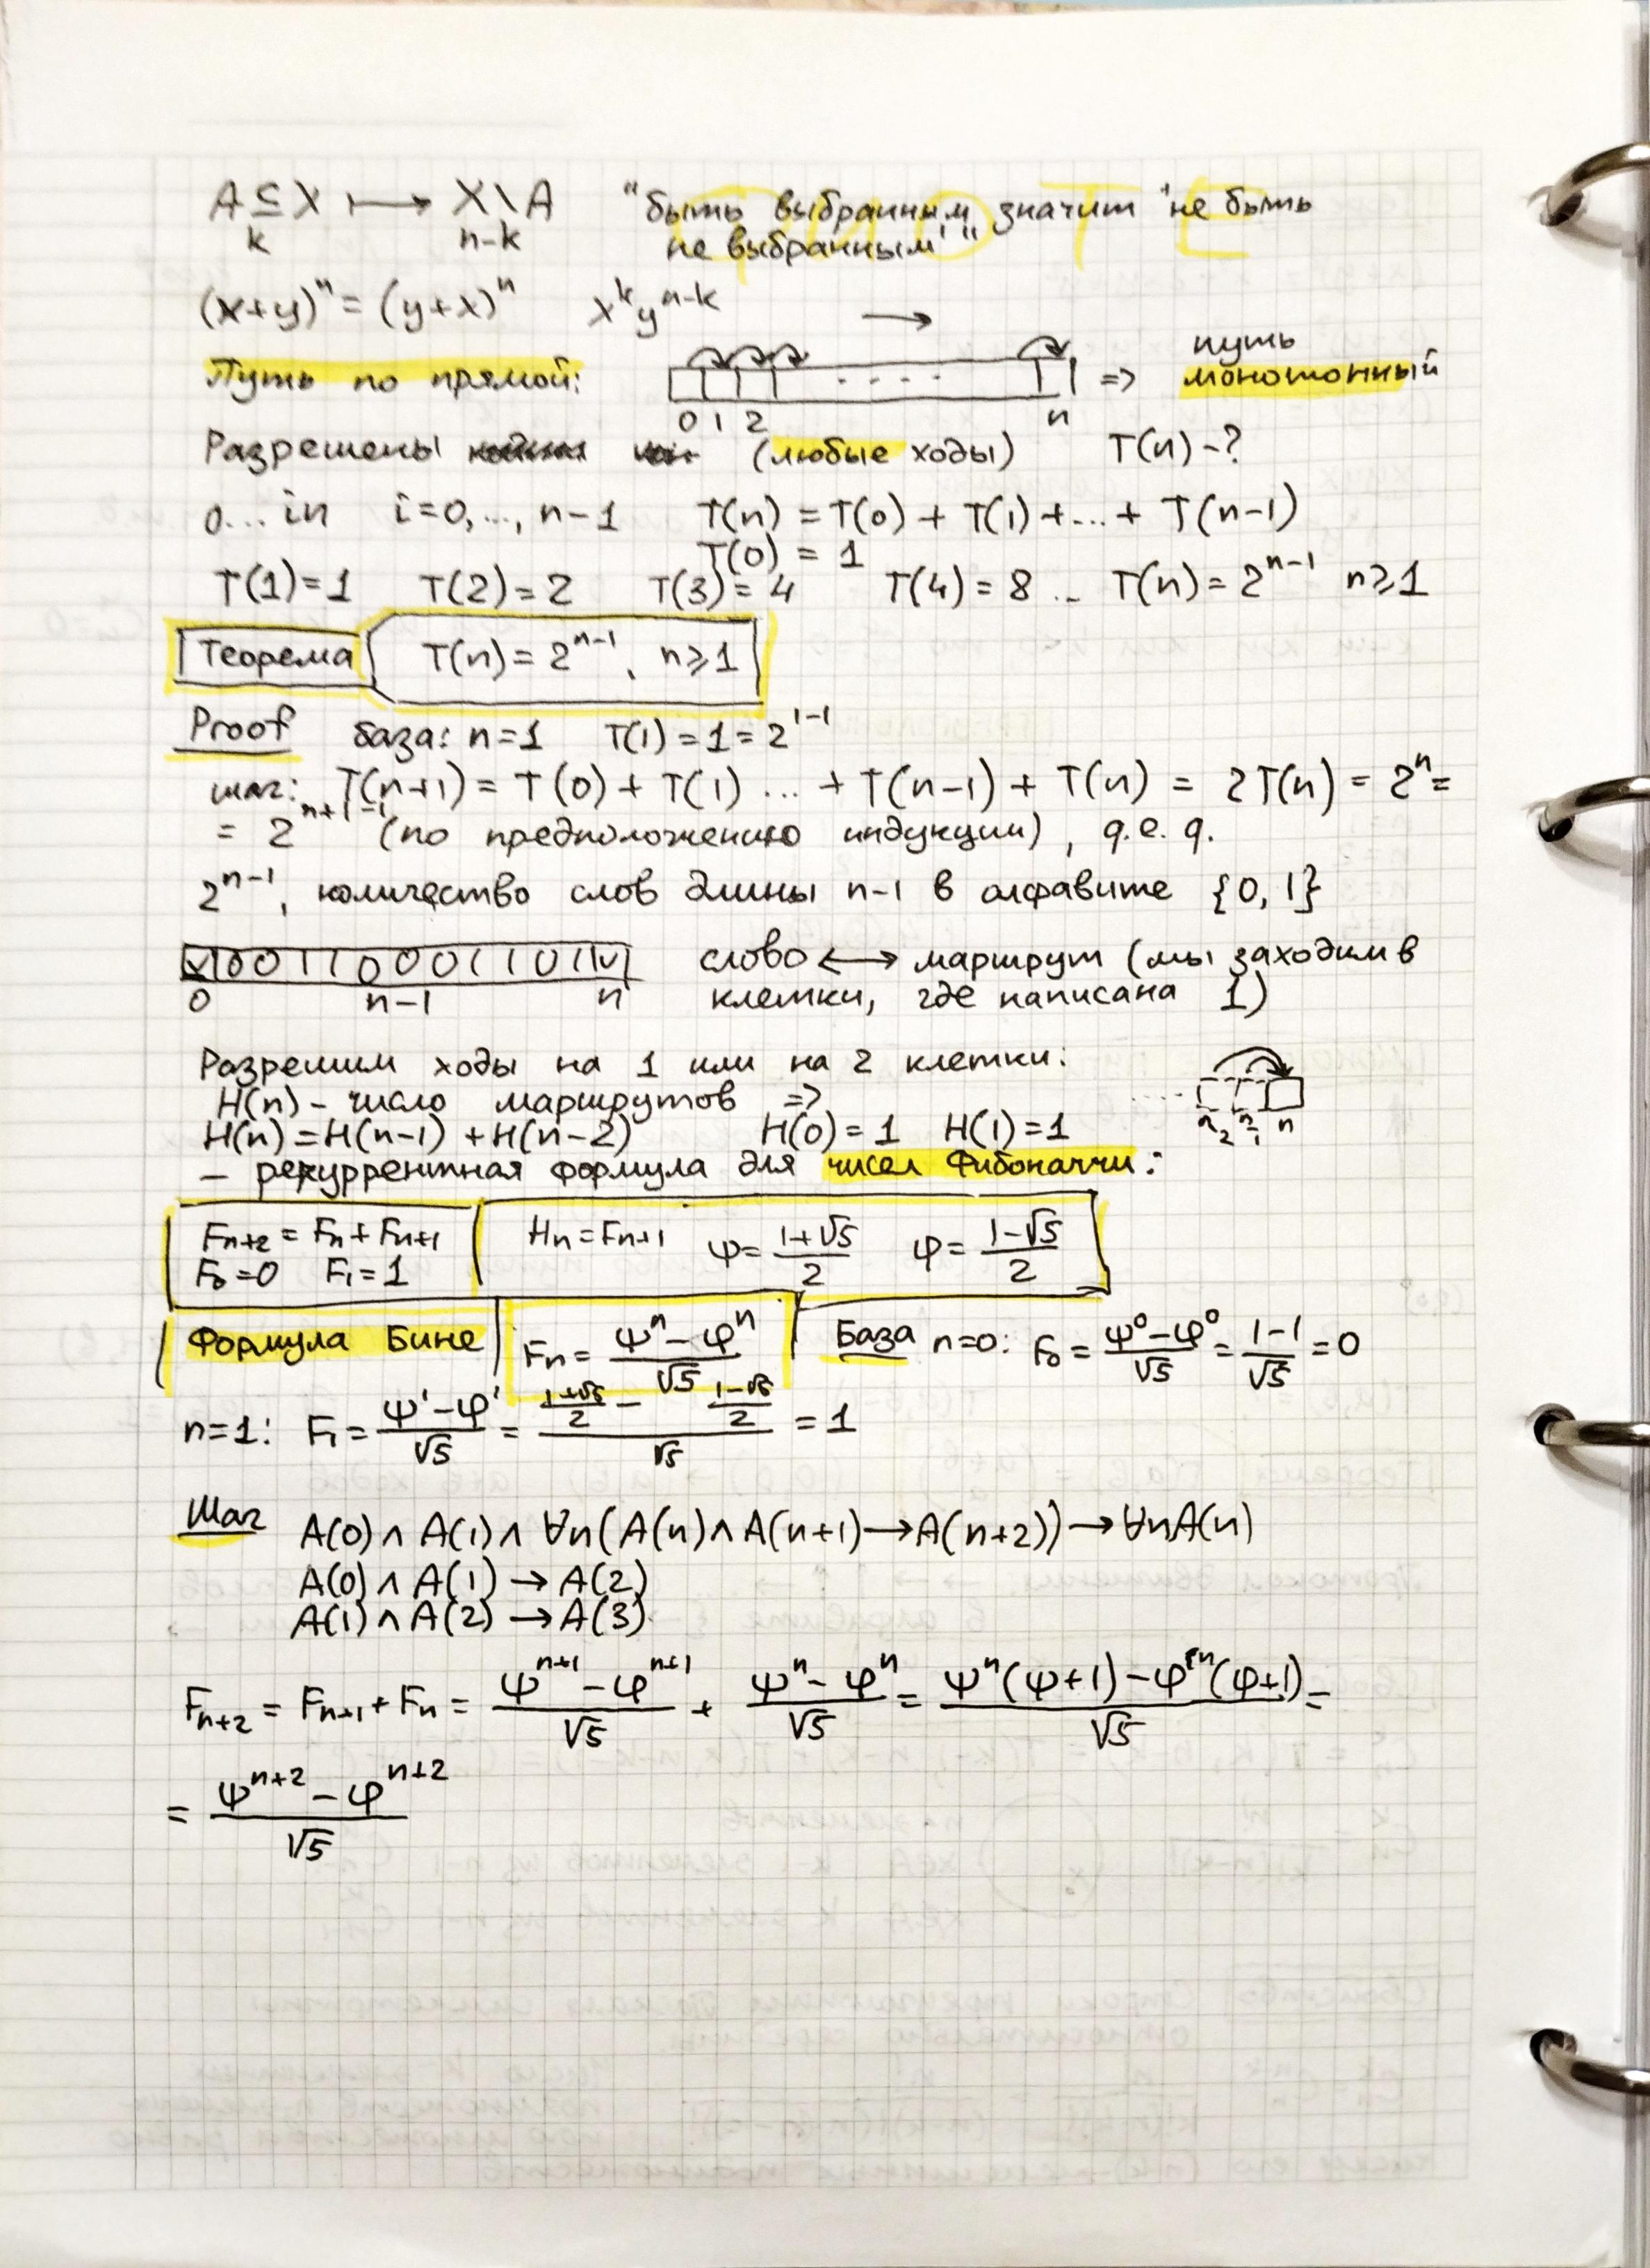 A ⊆ X ⟼ X \ A "быть выбранным значит 'не быть
k n-k не выбранным' "
(x+y)ⁿ = (y+x)ⁿ xᵏyⁿ⁻ᵏ →
Путь по прямой: 0 1 2 . . . . n => путь монотонный
Разрешены (любые ходы) T(n) - ?
0... i n i=0,..., n-1 T(n) = T(0) + T(1) +...+ T(n-1)
T(0) = 1
T(1)=1 T(2)=2 T(3)=4 T(4)=8 .. T(n)=2ⁿ⁻¹ n⩾1
Теорема T(n)=2ⁿ⁻¹, n⩾1
Proof база: n=1 T(1)=1=2¹⁻¹
шаг: T(n+1) = T(0) + T(1) ... + T(n-1) + T(n) = 2T(n) = 2ⁿ =
= 2ⁿ⁺¹⁻¹ (по предположению индукции), q.e.q.
2ⁿ⁻¹, количество слов длины n-1 в алфавите {0, 1}
слово ⟷ маршрут (мы заходим в
0 n-1 n клетки, где написана 1)
Разрешим ходы на 1 или на 2 клетки:
H(n) - число маршрутов =>
H(n) = H(n-1) + H(n-2) H(0)=1 H(1)=1 n-2 n-1 n
- рекуррентная формула для чисел Фибоначчи:
Fₙ₊₂ = Fₙ + Fₙ₊₁ Hₙ = Fₙ₊₁ ψ = (1+√5)/2 φ = (1-√5)/2
F₀=0 F₁=1
Формула Бине Fₙ = (ψⁿ - φⁿ)/√5 База n=0: F₀ = (ψ⁰ - φ⁰)/√5 = (1-1)/√5 = 0
n=1: F₁ = (ψ¹ - φ¹)/√5 = ((1+√5)/2 - (1-√5)/2)/√5 = 1
Шаг A(0) ∧ A(1) ∧ ∀n(A(n) ∧ A(n+1) → A(n+2)) → ∀nA(n)
A(0) ∧ A(1) → A(2)
A(1) ∧ A(2) → A(3)
Fₙ₊₂ = Fₙ₊₁ + Fₙ = (ψⁿ⁺¹ - φⁿ⁺¹)/√5 + (ψⁿ - φⁿ)/√5 = (ψⁿ(ψ+1) - φⁿ(φ+1))/√5 =
= (ψⁿ⁺² - φⁿ⁺²)/√5